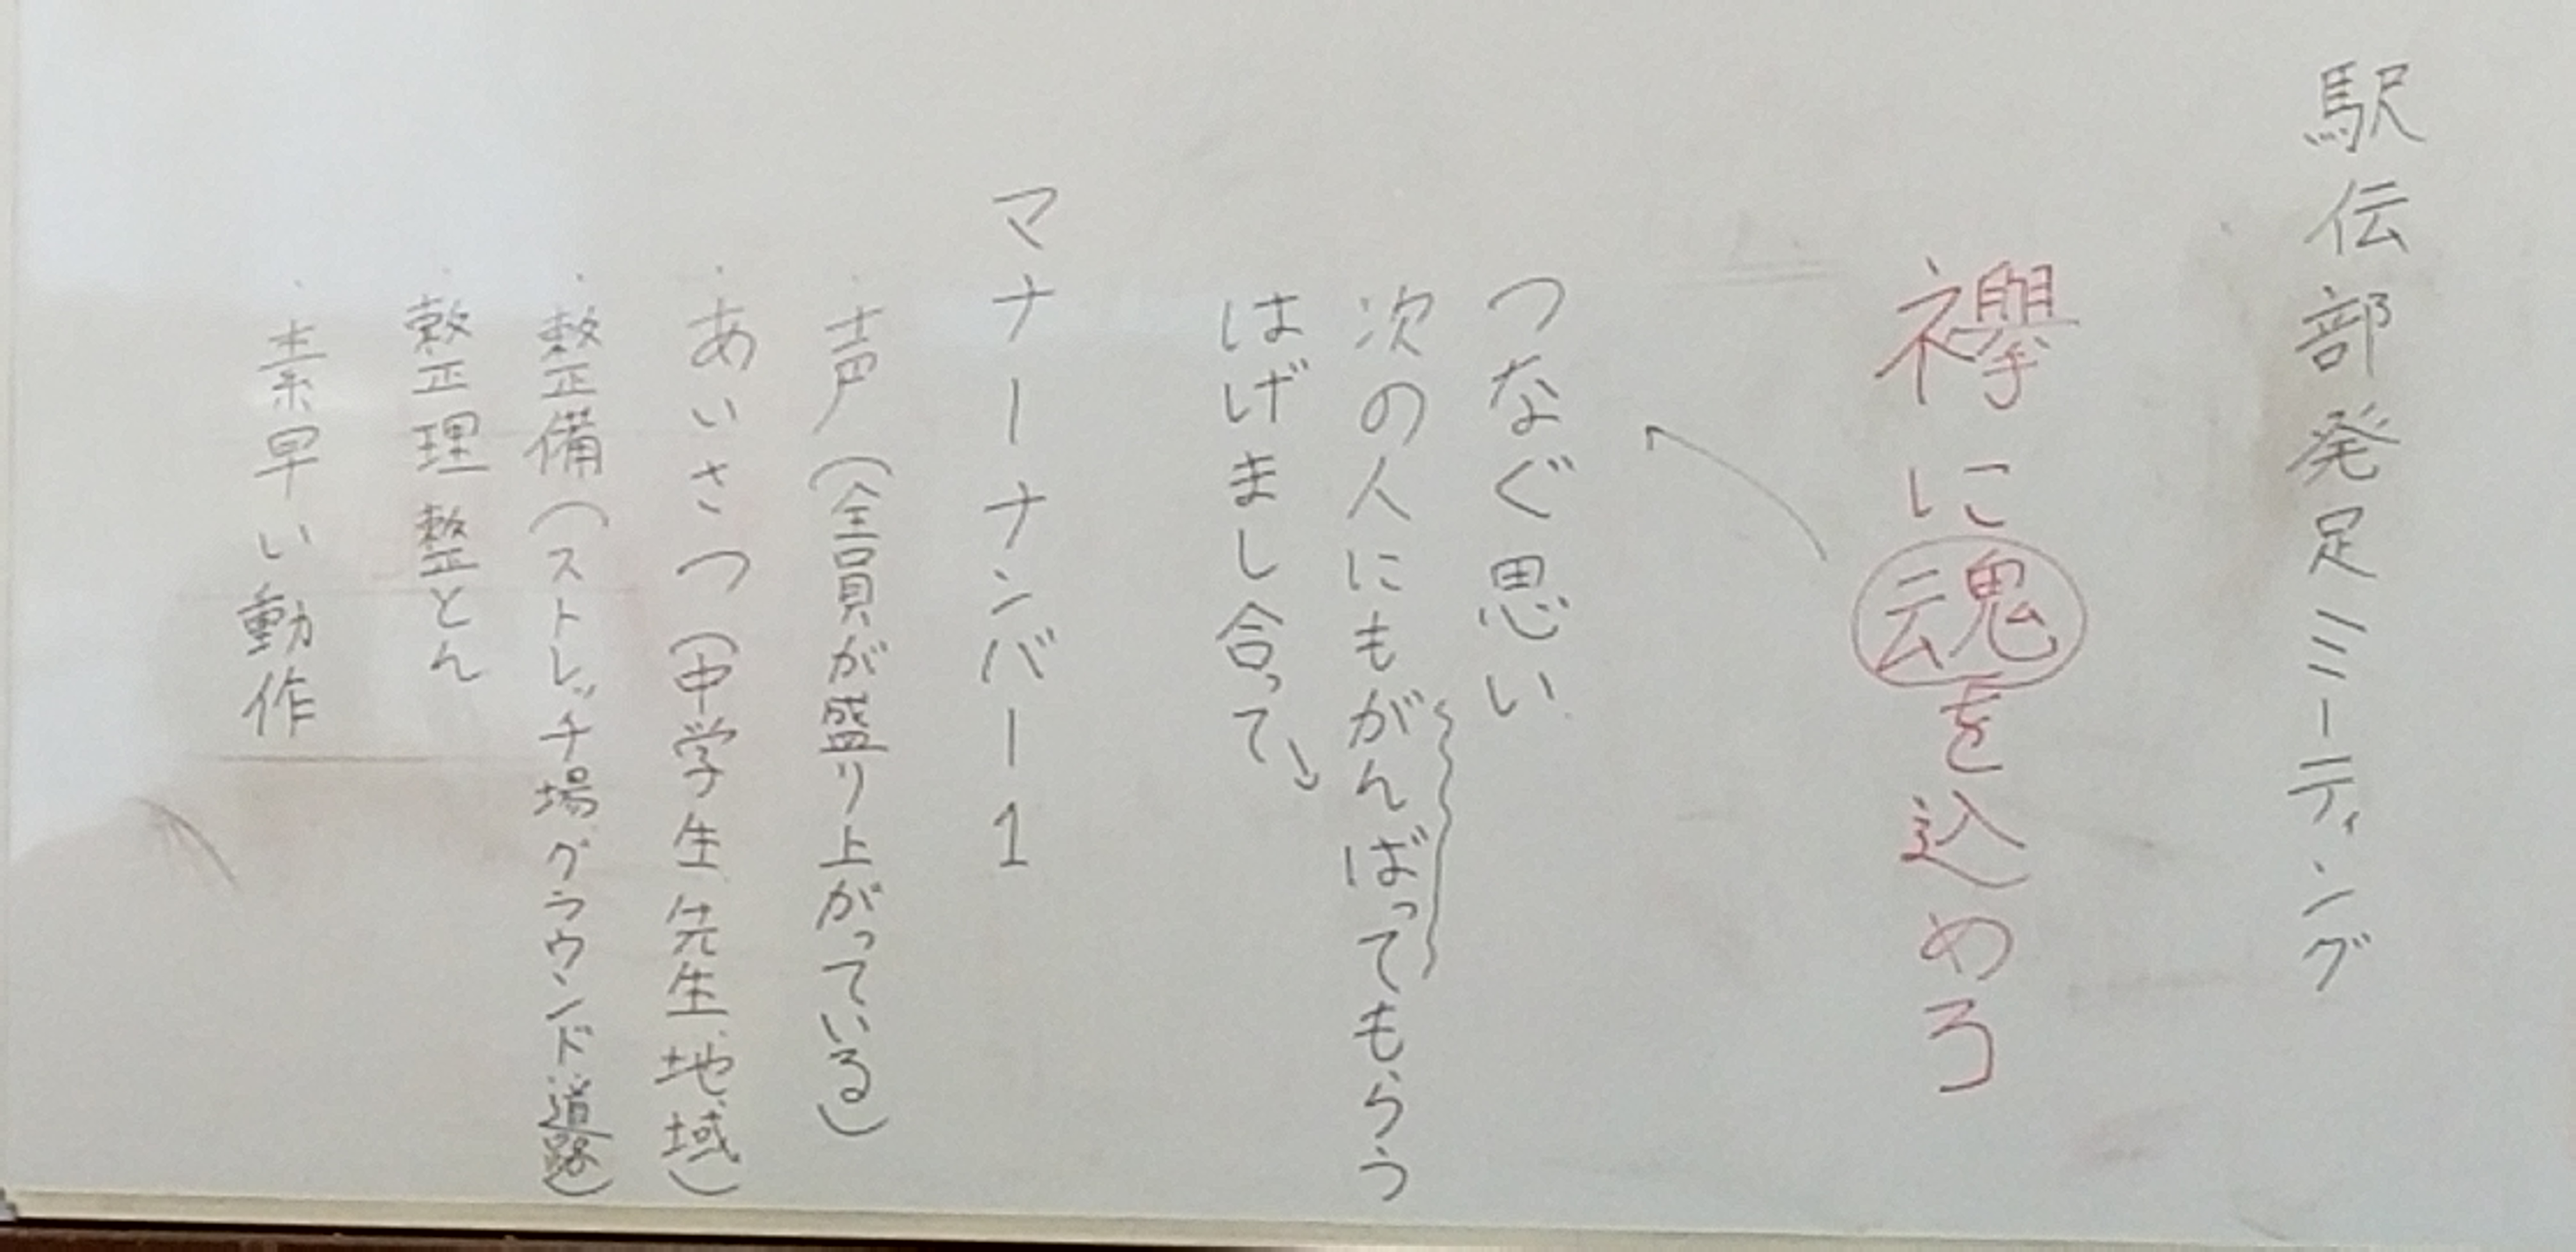 駅伝部発足ミーティング
襷に魂を込めろ
つなぐ思い
次の人にもがんばってもらう
はげまし合って
マナーナンバー1
・声(全員が盛り上がっている)
・あいさつ(中学生、先生、地域)
・整備(ストレッチ場、グラウンド、道路)
・整理整とん
・素早い動作